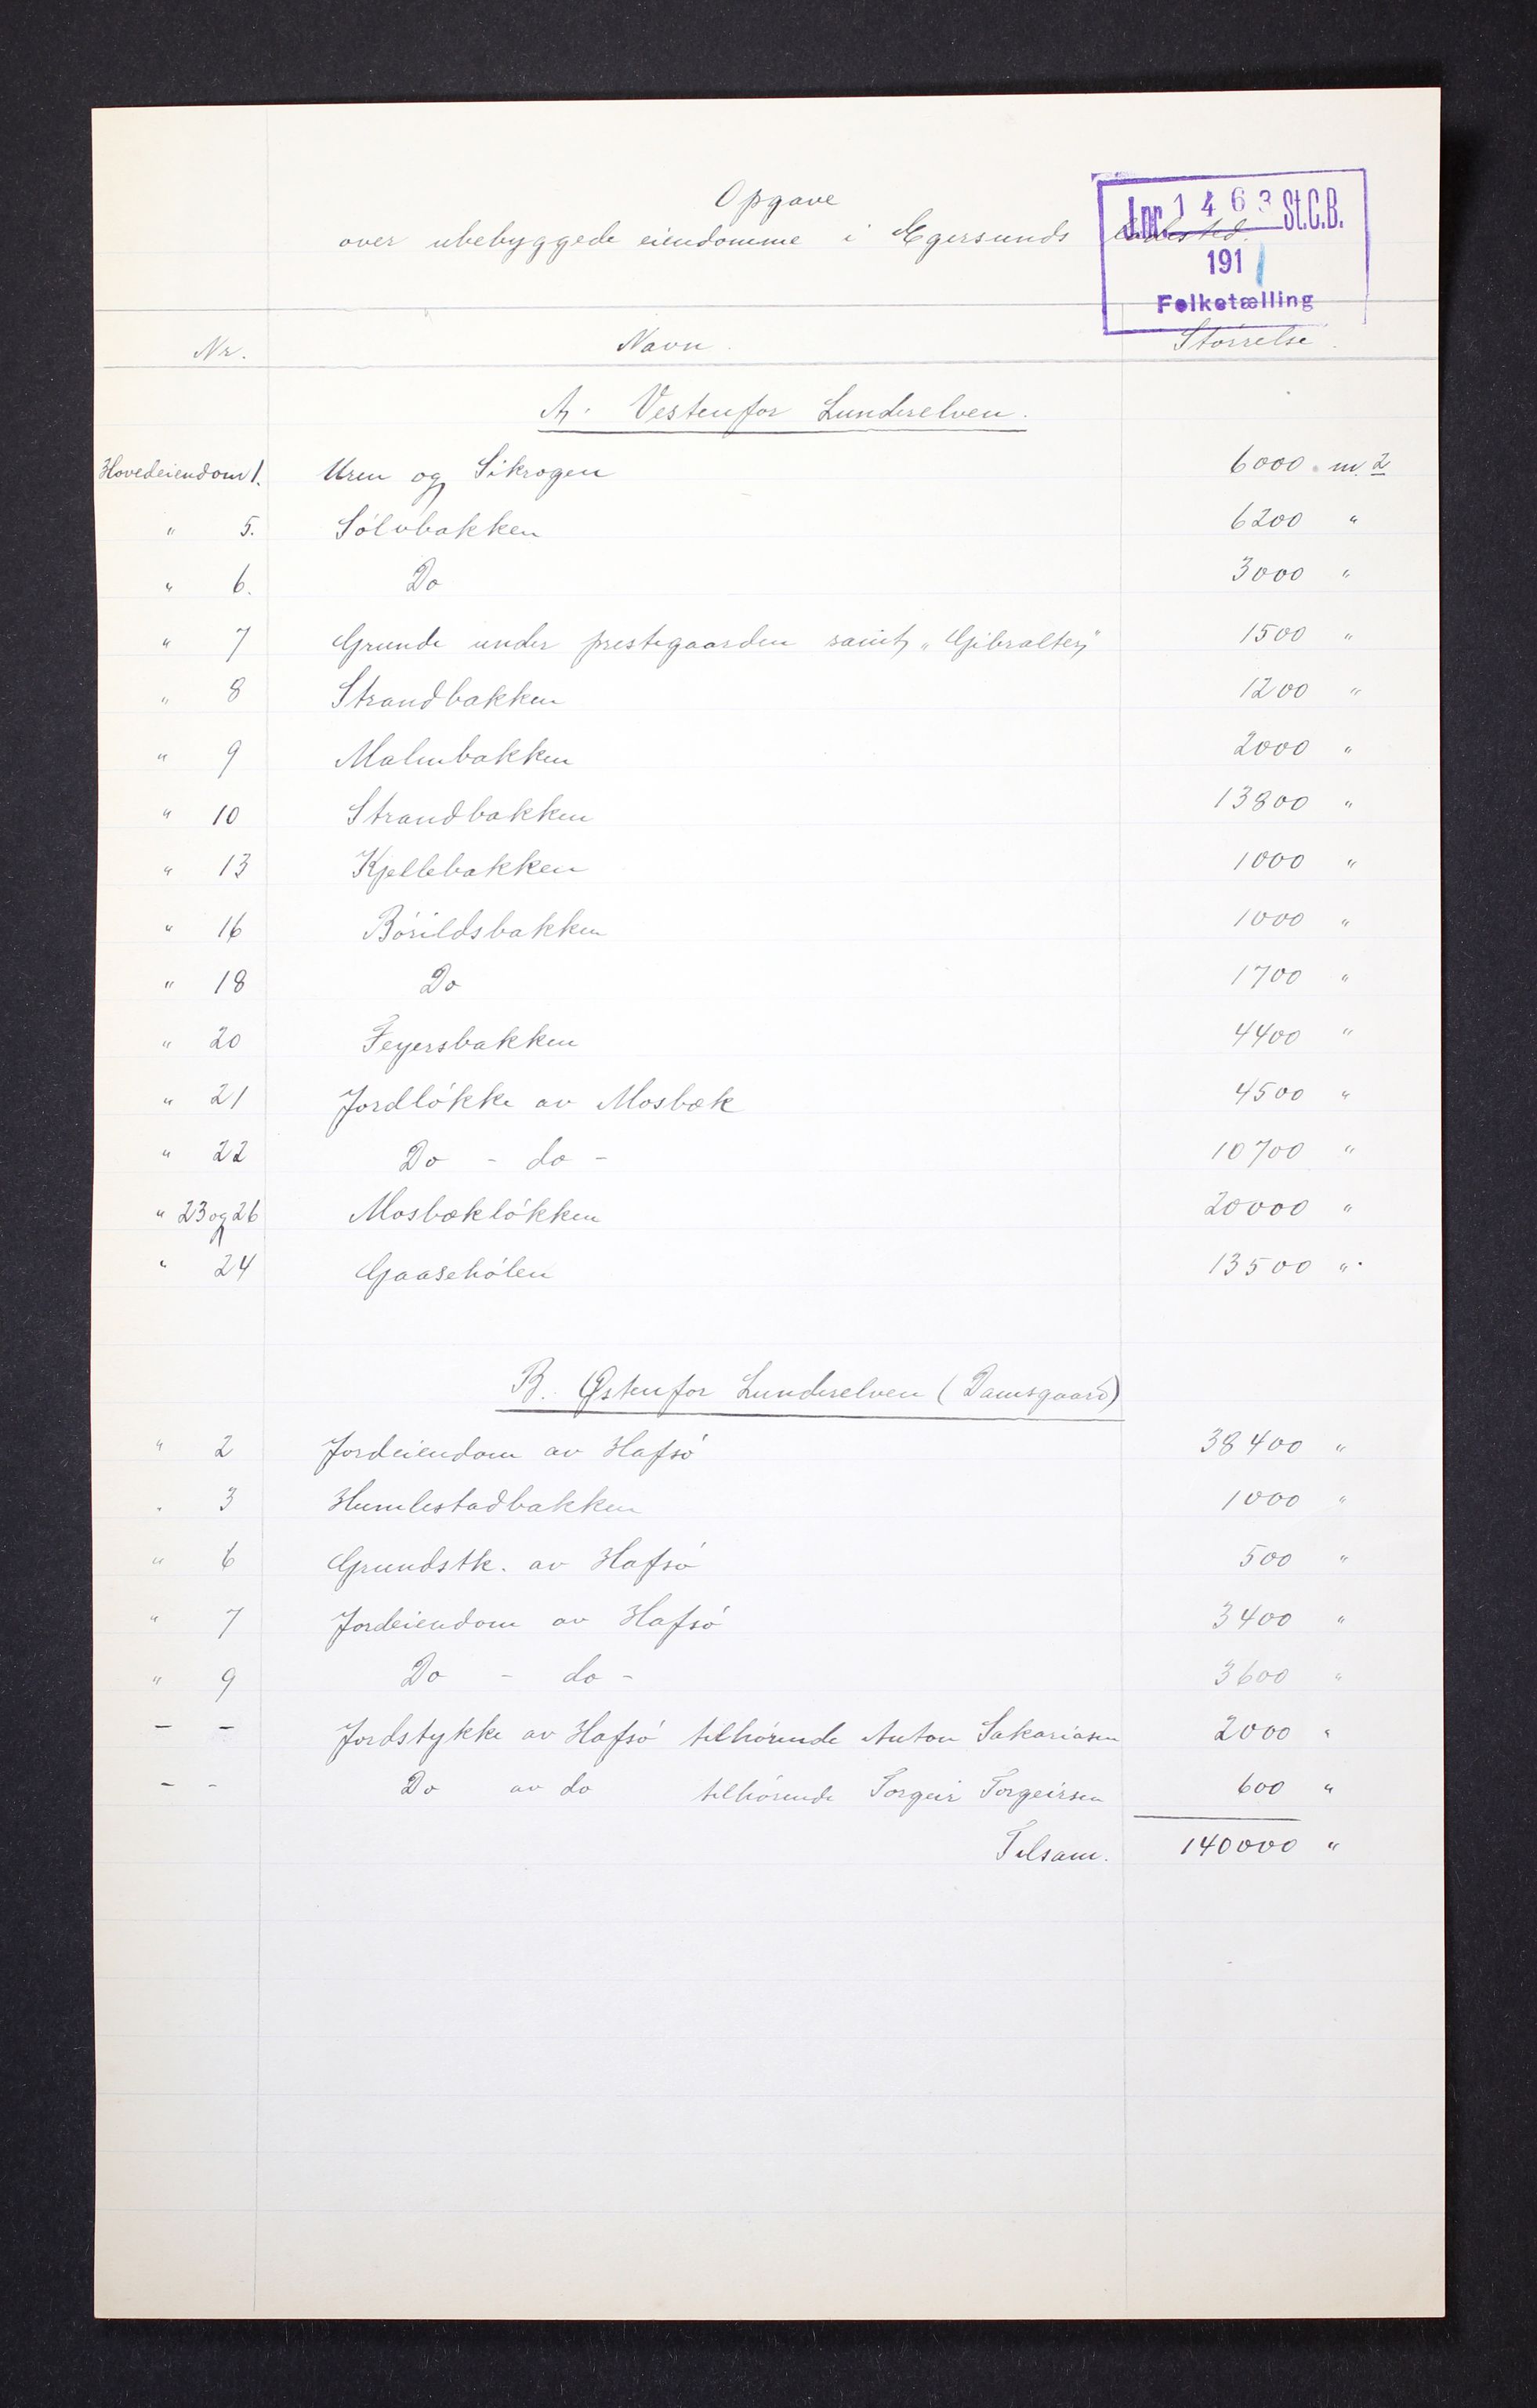 Opgave
over ubebyggede eiendomme i Egersunds ladested.
J.nr. 1463 St.C.B.
1911
Folketælling
Nr. Navn. Størrelse.
A. Vestenfor Lunderelven.
Hovedeiendom 1. Uren og Sikrogen 6000 m2
" 5. Sólvbakken 6200 "
" 6. Do 3000 "
" 7 Grunde under prestegaarden samt „Gibralter" 1500 "
" 8 Strandbakken 1200 "
" 9 Malmbakken 2000 "
" 10 Strandbakken 13800 "
" 13 Kjellebakken 1000 "
" 16 Bórildsbakken 1000 "
" 18 Do 1700 "
" 20 Feyersbakken 4400 "
" 21 Jordlókke av Mosbæk 4500 "
" 22 Do - do - 10700 "
" 23 og 26 Mosbæklókken 20000 "
" 24 Gaasehólen 13500 "
B. Østenfor Lunderelven (Damsgaard)
" 2 Jordeiendom av Hafsó 38400 "
" 3 Humlestadbakken 1000 "
" 6 Grundstk. av Hafsó 500 "
" 7 Jordeiendom av Hafsó 3400 "
" 9 Do - do - 3600 "
- - Jordstykke av Hafsó tilhórende Anton Sakariasen 2000 "
- - Do av do tilhórende Torgeir Torgeirsen 600 "
Tilsam. 140000 "